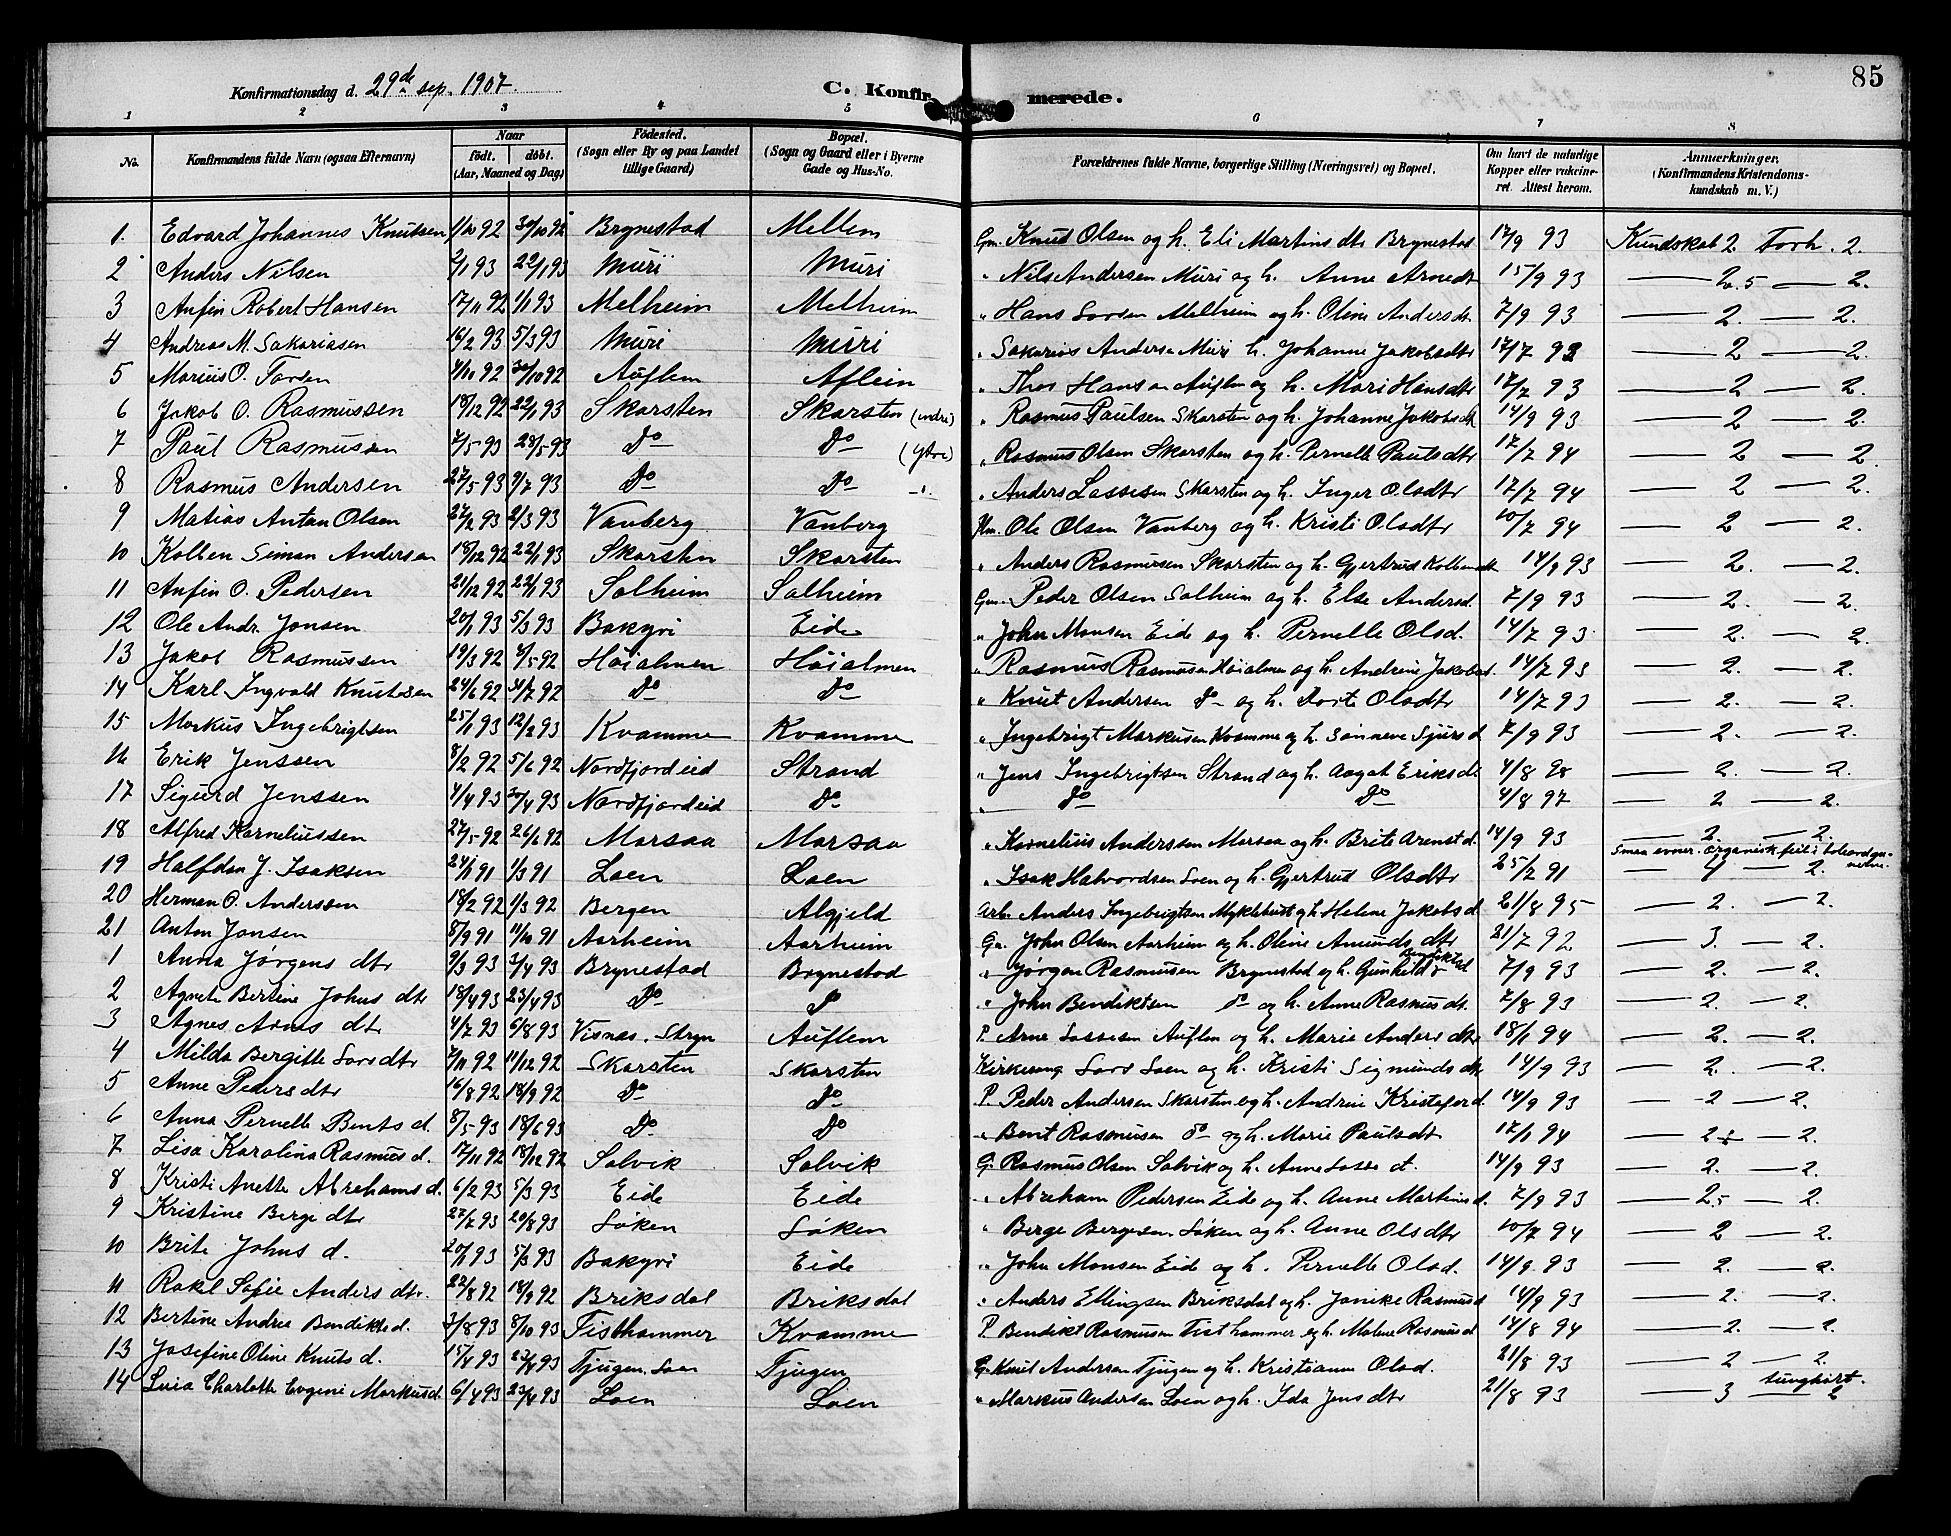 85
Konfirmationsdag d. 29de sep. 1907.
C. Konfir merede.
1 2 3 4 5 6 7 8
No. Konfirmandens fulde Navn (ogsaa Efternavn) Naar født. døbt. (Aar, Maaned og Dag) Fødested. (Sogn eller By og paa Landet tillige Gaard) Bopæl. (Sogn og Gaard eller i Byerne Gade og Hus-No. Forældrenes fulde Navne, borgerlige Stilling (Næringsvei) og Bopæl. Om havt de naturlige Kopper eller vakcineret. Attest herom. Anmerkninger. (Konfirmandens Kristendomskundskab m. V.)
1. Edvard Johannes Knutsen 1/10 92 30/10 92 Brynestad Mellem Gm. Knud Olsen og h. Eli Martins dtr Brynestad 17/9 93 Kundskab 2. Forh. 2.
2 Anders Nilsen 2/1 93 22/1 93 Muri Muri " Nils Andersen Muri og h. Anne Arnedt 15/9 93 — 2.5 — 2.
3 Anfin Robert Hansen 17/11 92 1/1 93 Melheim Melheim " Hans Larsen Melheim og h. Oline Andersdt. 7/9 93 — 2. — 2.
4 Andreas M. Sakariasen 16/2 93 5/3 93 Muri Muri " Sakarias Anders Muri h. Johanne Jakobsdtr 17/7 93 — 2 — 2.
5 Marius O. Torsen 4/10 92 30/10 92 Auflem Aflem " Thor Hansen Auflem og h. Mari Hansdtr 17/7 93 — 2 — 2.
6 Jakob O. Rasmussen 18/12 92 22/1 93 Skarsten Skarsten (indri) " Rasmus Paulsen Skarsten og h. Johanne Jakobsdt 14/9 93 — 2 — 2.
7 Paul Rasmussen 7/5 93 28/5 93 do do (ytre) " Rasmus Olsen Skarsten og h. Pernelle Paulsdtr 17/7 94 — 2 — 2.
8 Rasmus Andersen 27/5 93 9/7 93 do do —"— " Anders Lassesen Skarsten og h. Inger Olsdtr 17/7 94 — 2 — 2.
9 Matias Antan Olsen 27/2 93 2/3 93 Vanberg Vanberg Pm. Ole Olsen Vanberg og h. Kristi Olsdtr 10/7 94 — 2 — 2.
10 Kolben Simon Andersen 18/12 92 22/1 93 Skarsten Skarsten " Anders Rasmussen Skarsten og h. Gjertrud Kolbensdt 14/9 93 — 2. — 2.
11 Anfin O. Pedersen 21/12 92 22/1 93 Solheim Solheim Gm. Peder Olsen Solheim og h. Else Andersd. 7/9 93 — 2. — 2
12 Ole Andr. Jonsen 20/1 93 5/3 93 Bakyri Eide " John Monsen Eide og h. Pernelle Olsd. 14/7 93 — 2. — 2.
13 Jakob Rasmussen 19/3 92 8/5 92 Høialmen Høialmen " Rasmus Rasmusen Høialmen og h. Andrine Jakobsd. 14/7 93 — 2. — 2.
14 Karl Ingvald Knutsen 24/6 92 31/7 92 do do " Knut Andersen do og h. Dorte Olsdtr 14/7 93 — 2. — 2.
15 Markus Ingebrigtsen 25/1 93 12/2 93 Kvamme Kvamme " Ingebrigt Markusen Kvamme og h. Sønneve Sjursd 7/9 93 — 2. — 2.
16 Erik Jenssen 8/2 92 5/6 92 Nordfjordeid Strand " Jens Ingebrigtsen Strand og h. Aagat Eriksdt. 4/8 98 — 2. — 2.
17 Sigurd Jenssen 4/4 93 30/4 93 Nordfjordeid do " do do 4/8 97 — 2 — 2.
18 Alfred Korneliussen 27/5 92 26/6 92 Marsaa Marsaa " Kornelius Anderssen Marsaa og h. Brite Arenstd. 14/9 93 — 2. — 2.
19 Halfdan J. Isaksen 24/1 91 1/3 91 Loen Loen " Isak Halvordsen Loen og h. Gjertrud Olsdtr 25/2 91 smaa evner. organisk feil i taleorganerne. — 4 — 2.
20 Herman O. Anderssen 18/2 92 1/3 92 Bergen Algjeld Arb. Anders Ingebrigtsen Myklebust og h. Helene Jakobsd 21/8 95 — 2. — 2.
21 Anton Jonsen 8/9 91 11/10 91 Aarheim Aarheim Ga. John Olsen Aarheim og h. Oline Amunds dtr 21/7 92 — 3. — 2.
1 Anna Jørgens dtr 9/3 93 3/4 93 Brynestad Brynestad " Jørgen Rasmusen Brynestad og h. Gunhild Bendiktsd 7/9 93 — 2. — 2.
2 Agnete Bertine Johns dtr 18/4 93 23/4 93 do do " John Bendiktsen do og h. Anne Rasmusdt. 7/8 93 — 2. — 2.
3 Agnes Arnes dtr 4/7 93 6/8 93 Visnas. Stryn Auflem P. Arne Lassesen Auflem og h. Marie Anders dtr 18/1 94 — 2. — 2.
4 Milda Bergitte Larsdtr 7/11 92 11/12 92 Skarsten Skarsten Kirkesang. Lars Loen og h. Kristi Sigmunds dtr 14/9 93 — 2. — 2.
5 Anne Pedersdtr 16/8 92 18/9 92 do do P. Peder Andersen Skarsten og h. Andrine Kristoferd. 14/9 93 — 2 — 2.
6 Anna Pernelle Bents d. 8/5 93 18/6 93 do do " Bent Rasmusen do og h. Marie Paulsdtr 17/1 94 — 2.5 — 2.
7 Lisa Karolina Rasmusd. 17/11 92 18/12 92 Solvik Solvik G. Rasmus Olsen Solvik og h. Anne Lasse dt. 14/9 93 — 2. — 2.
8 Kristi Anette Abrahamsd. 6/2 93 5/3 93 Eide Eide " Abraham Pedersen Eide og h. Anne Martinsd. 7/9 93 — 2.5 — 2.
9 Kristine Berge dtr 27/7 93 20/8 93 Søken Søken " Berge Bergesen Søken og h. Anne Olsdtr 10/7 94 — 2 — 2.
10 Brite Johns d. 20/1 93 5/3 93 Bakyri Eide " John Monsen Eide og h. Pernelle Olsd. 14/9 93 — 2. — 2.
11 Rakel Sofie Anders dtr. 22/8 92 18/9 92 Briksdal Briksdal " Anders Ellingsen Briksdal og h. Jonike Rasmusd 14/9 93 — 2. — 2.
12 Bertine Andrea Bendiktsd. 3/8 93 8/10 93 Tisthammer Kvamme P. Bendikt Rasmusen Tisthammer og h. Malene Rasmusd 14/8 94 — 2. — 2.
13 Josefine Oline Knuts d. 15/4 93 23/4 93 Tjugen, Loen Tjugen G. Knut Andersen Tjugen og h. Kristianne Olsd. 21/8 93 — 2 — 2.
14 Luia Charlotte Evgeni Markusd. 6/4 93 23/4 93 Loen Loen " Markus Andersen Loen og h. Ida Jensdtr 21/8 93 — 3 tunghørt. — 2